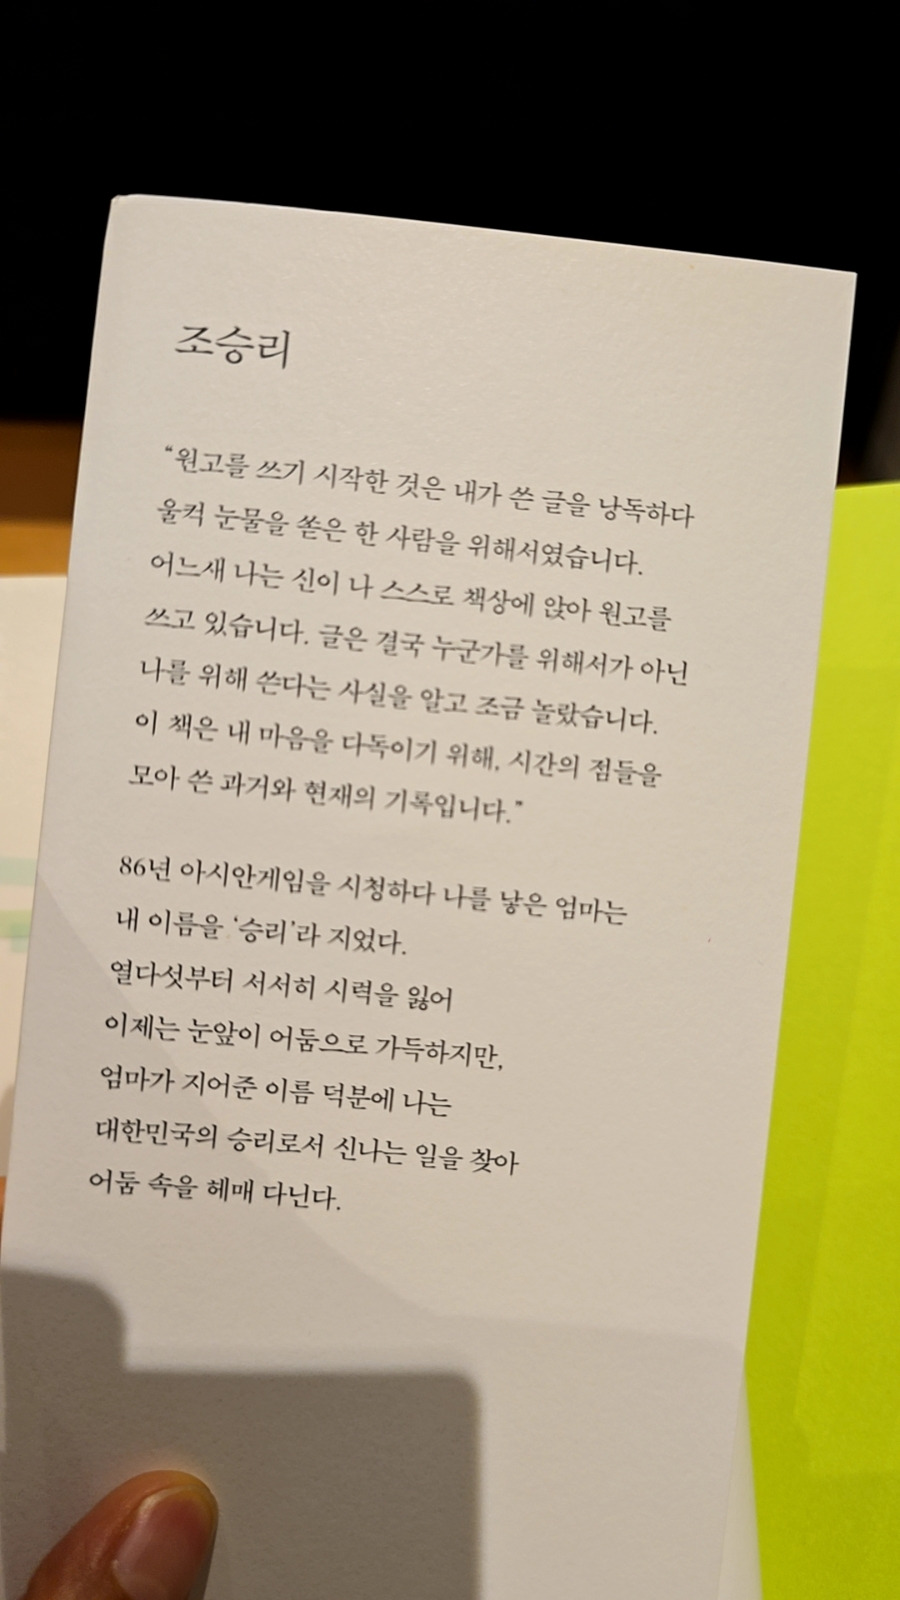 조승리
“원고를 쓰기 시작한 것은 내가 쓴 글을 낭독하다
울컥 눈물을 쏟은 한 사람을 위해서였습니다.
어느새 나는 신이 나 스스로 책상에 앉아 원고를
쓰고 있습니다. 글은 결국 누군가를 위해서가 아닌
나를 위해 쓴다는 사실을 알고 조금 놀랐습니다.
이 책은 내 마음을 다독이기 위해, 시간의 점들을
모아 쓴 과거와 현재의 기록입니다.”
86년 아시안게임을 시청하다 나를 낳은 엄마는
내 이름을 ‘승리’라 지었다.
열다섯부터 서서히 시력을 잃어
이제는 눈앞이 어둠으로 가득하지만,
엄마가 지어준 이름 덕분에 나는
대한민국의 승리로서 신나는 일을 찾아
어둠 속을 헤매 다닌다.